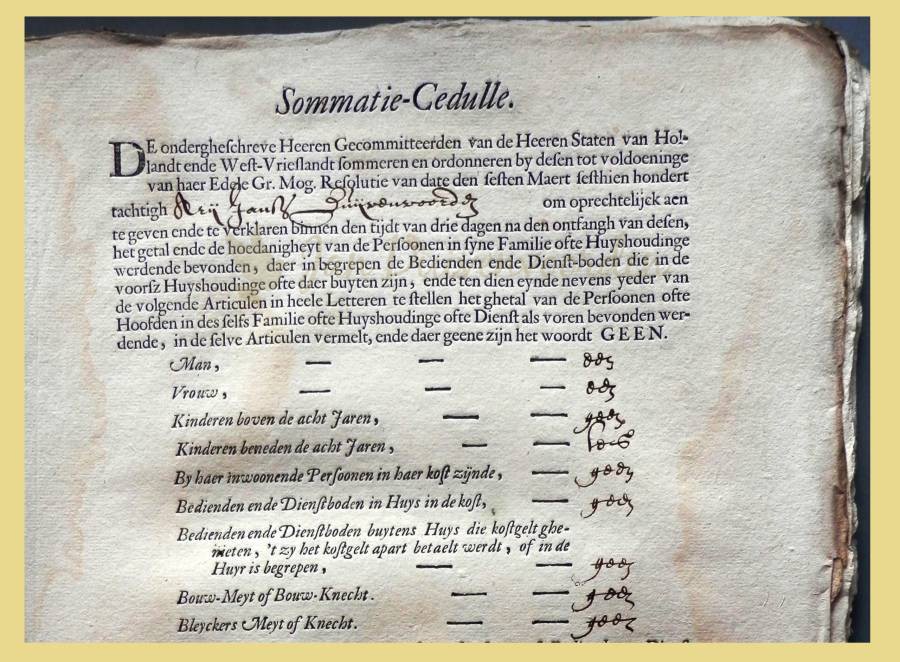 Sommatie-Cedulle.
DE onderghеschreve Heeren Gecommitteerden van de Heeren Staten van Hol-
landt ende West-Vrieslandt sommeren en ordonneren by desen tot voldoeninge
van haer Edele Gr. Mog. Resolutie van date den sesten Maert sesthien hondert
tachtigh Arij Jansz Duijvenvoorde om oprechtelijck aen
te geven ende te verklaren binnen den tijdt van drie dagen na den ontfangh van desen,
het getal ende de hoedanigheyt van de Persoonen in syne Familie ofte Huyshoudinge
werdende bevonden, daer in begrepen de Bedienden ende Dienst-boden die in de
voorsz Huyshoudinge ofte daer buyten zijn, ende ten dien eynde nevens yeder van
de volgende Articulen in heele Letteren te stellen het ghetal van de Persoonen ofte
Hoofden in des selfs Familie ofte Huyshoudinge ofte Dienst als voren bevonden wer-
dende, in de selve Articulen vermelt, ende daer geene zijn het woordt GEEN.
Man, — — — een
Vrouw, — — — een
Kinderen boven de acht Jaren, — — geen
Kinderen beneden de acht Jaren, — — ses
By haer inwoonende Persoonen in haer kost zijnde, — geen
Bedienden ende Dienstboden in Huys in de kost, — geen
Bedienden ende Dienstboden buytens Huys die kostgelt ghe-
nieten, 't zy het kostgelt apart betaelt werdt, of in de
Huyr is begrepen, — — geen
Bouw-Meyt of Bouw-Knecht. — — geen
Bleyckers Meyt of Knecht. — — geen